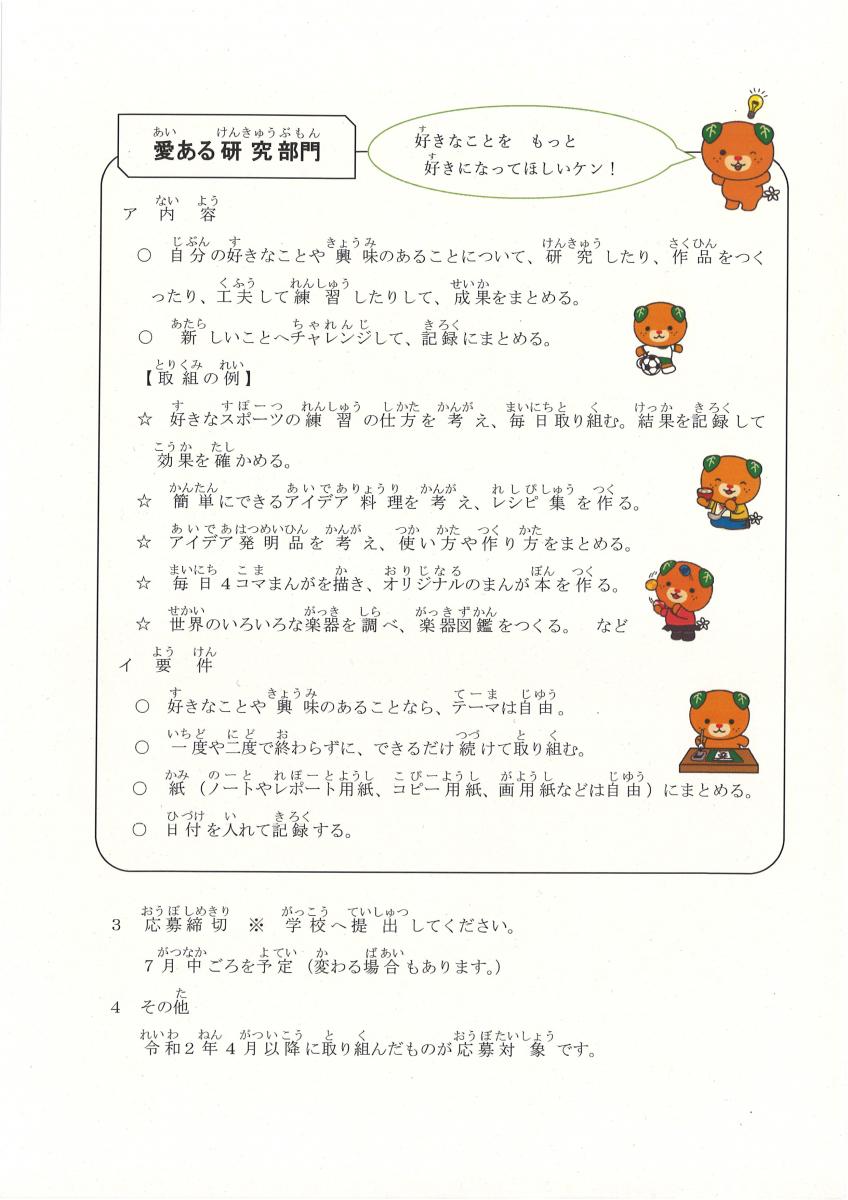 愛ある研究部門
好きなことを もっと
好きになってほしいケン！
ア 内容
○ 自分の好きなことや興味のあることについて、研究したり、作品をつく
ったり、工夫して練習したりして、成果をまとめる。
○ 新しいことへチャレンジして、記録にまとめる。
【取組の例】
☆ 好きなスポーツの練習の仕方を考え、毎日取り組む。結果を記録して
効果を確かめる。
☆ 簡単にできるアイデア料理を考え、レシピ集を作る。
☆ アイデア発明品を考え、使い方や作り方をまとめる。
☆ 毎日４コマまんがを描き、オリジナルのまんが本を作る。
☆ 世界のいろいろな楽器を調べ、楽器図鑑をつくる。 など
イ 要件
○ 好きなことや興味のあることなら、テーマは自由。
○ 一度や二度で終わらずに、できるだけ続けて取り組む。
○ 紙（ノートやレポート用紙、コピー用紙、画用紙などは自由）にまとめる。
○ 日付を入れて記録する。
３ 応募締切 ※ 学校へ提出してください。
７月中ごろを予定（変わる場合もあります。）
４ その他
令和２年４月以降に取り組んだものが応募対象です。